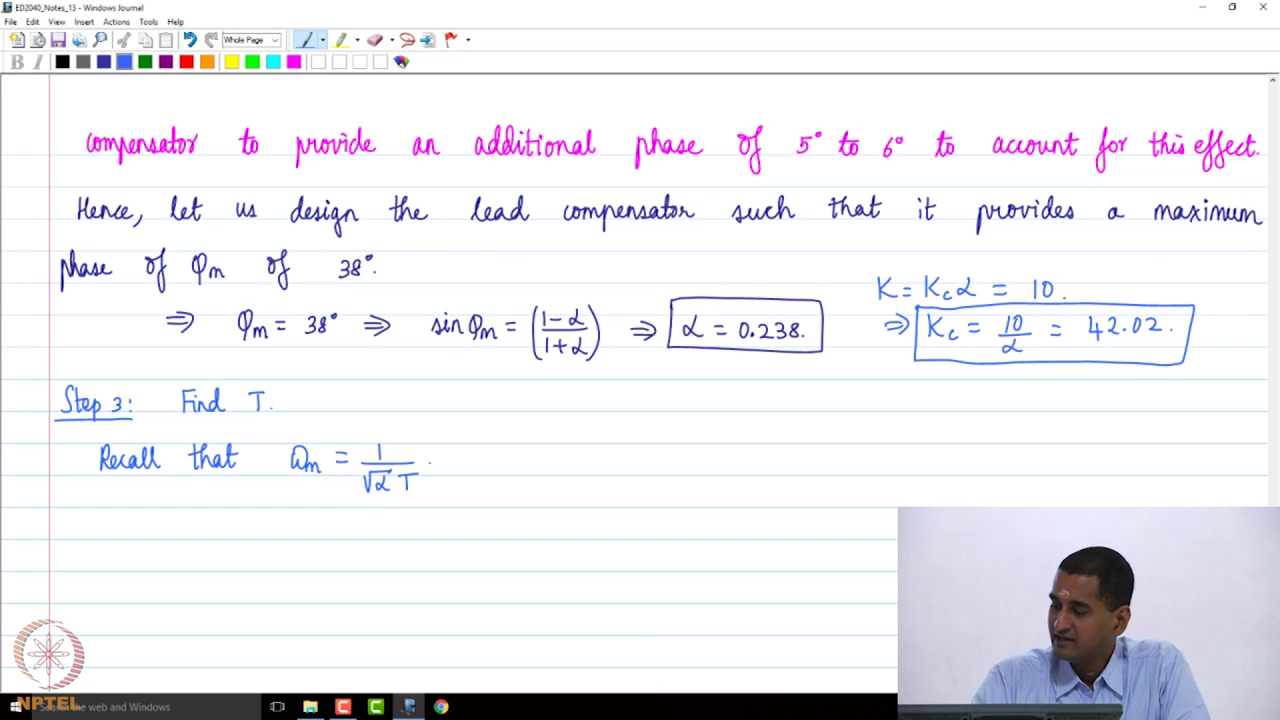 ED2040_Notes_13 - Windows Journal
File Edit View Insert Actions Tools Help
Whole Page
B I
compensator to provide an additional phase of 5° to 6° to account for this effect.
Hence, let us design the lead compensator such that it provides a maximum
phase of φm of 38°.
K = Kc α = 10.
⇒ φm = 38° ⇒ sin φm = (1-α / 1+α) ⇒ α = 0.238.
⇒ Kc = 10/α = 42.02.
Step 3: Find T.
Recall that ωm = 1/√α T.
NPTEL
Search the web and Windows